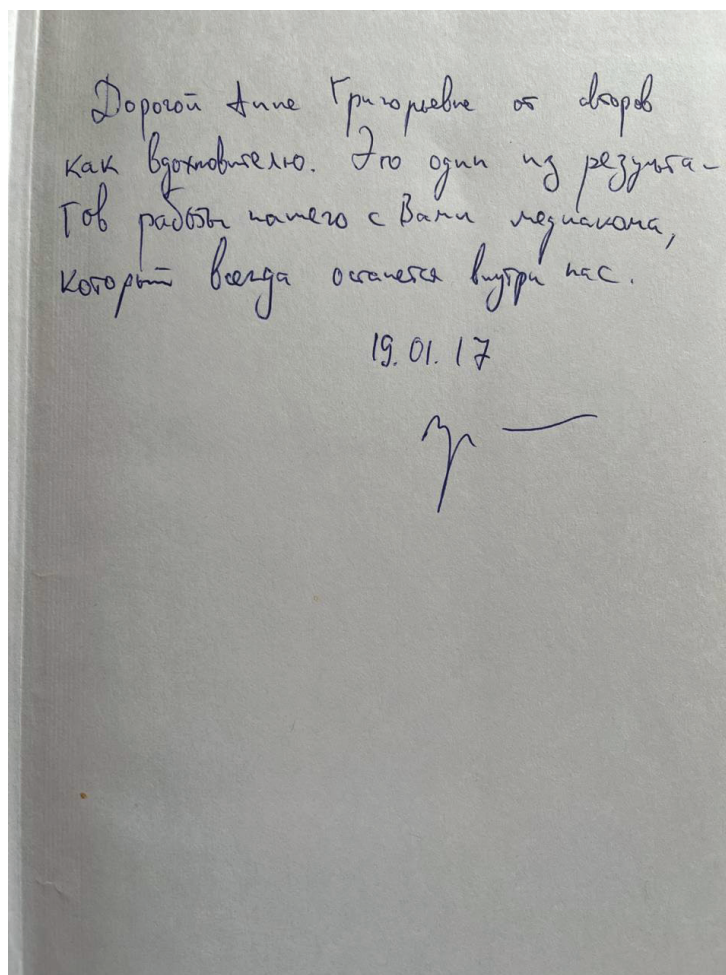 Дорогой Анне Григорьевне от авторов
как вдохновителю. Это один из результа-
тов работы нашего с Вами медиакома,
который всегда останется внутри нас.
19.01.17